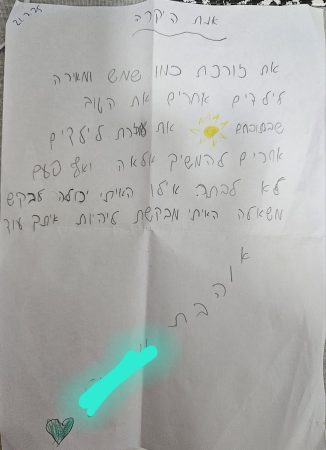 22.7.21
אנת היקרה
את זורחת כמו שמש ומאירה
לילדים אחרים את הטוב
שבתוכם את עוזרת לילדים
אחרים להמשיך הלאה ואף פעם
לא לבתר. אילו האיתי יכולה לבקש
משאלה האיתי מבקשת ליהיות איתך עוד
אוהבת